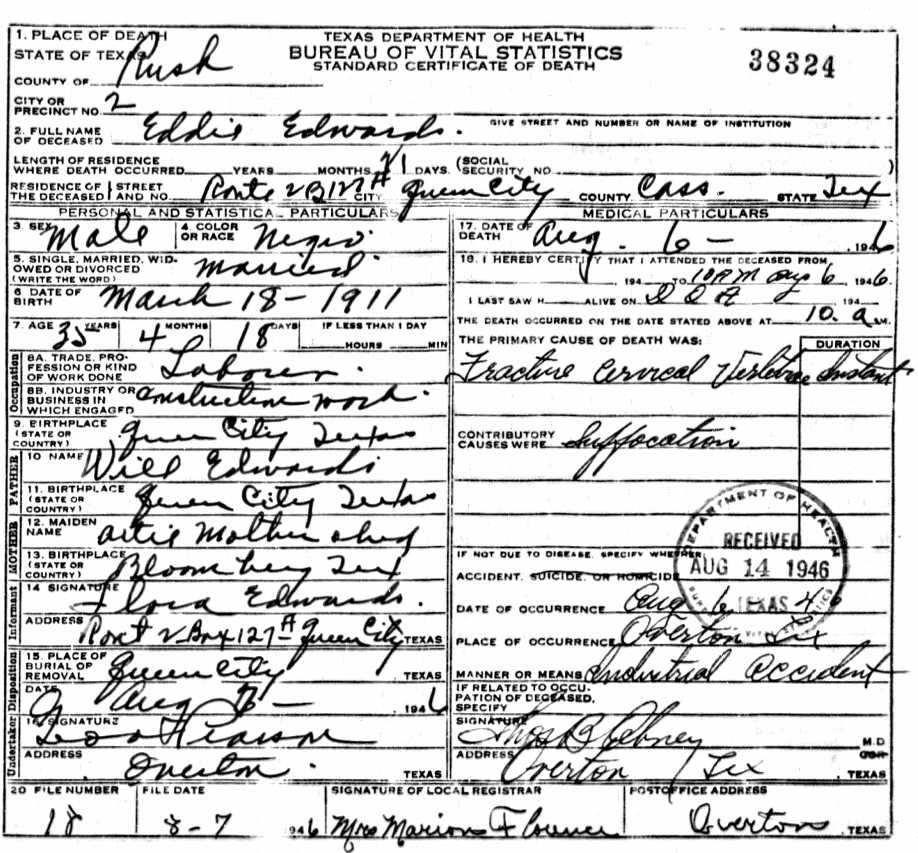 TEXAS DEPARTMENT OF HEALTH
BUREAU OF VITAL STATISTICS
STANDARD CERTIFICATE OF DEATH
38324
1. PLACE OF DEATH
STATE OF TEXAS
COUNTY OF Rusk
CITY OR
PRECINCT NO. 2
2. FULL NAME
OF DECEASED Eddie Edwards.
GIVE STREET AND NUMBER OR NAME OF INSTITUTION
LENGTH OF RESIDENCE
WHERE DEATH OCCURRED YEARS MONTHS 1 DAYS. (SOCIAL
SECURITY NO. )
RESIDENCE OF STREET
THE DECEASED AND NO. Route 2 B 127 A CITY Queen City COUNTY Cass. STATE Tex
PERSONAL AND STATISTICAL PARTICULARS
3. SEX Male 4. COLOR
OR RACE Negro
5. SINGLE, MARRIED, WID-
OWED OR DIVORCED
(WRITE THE WORD) Married
6 DATE OF
BIRTH March 18 - 1911
7. AGE 35 YEARS 4 MONTHS 18 DAYS IF LESS THAN 1 DAY
HOURS MIN
Occupation
8A. TRADE, PRO-
FESSION OR KIND
OF WORK DONE Laborer.
8B. INDUSTRY OR
BUSINESS IN
WHICH ENGAGED Construction work.
9. BIRTHPLACE
(STATE OR
COUNTRY) Queen City Texas
FATHER
10 NAME Will Edwards
11. BIRTHPLACE
(STATE OR
COUNTRY) Queen City Texas
MOTHER
12. MAIDEN
NAME Artie
13. BIRTHPLACE
(STATE OR
COUNTRY) Bloomberg Tex
Informant
14 SIGNATURE Flora Edwards.
ADDRESS Rout 2 Box 127 A Queen City TEXAS
Disposition
15. PLACE OF
BURIAL OR
REMOVAL Queen City TEXAS
DATE Aug 1946
Undertaker
16 SIGNATURE Pearson
ADDRESS Overton. TEXAS
MEDICAL PARTICULARS
17. DATE OF
DEATH Aug. 6 - 1946
18. I HEREBY CERTIFY THAT I ATTENDED THE DECEASED FROM
194 TO 10 PM Aug 6 1946
I LAST SAW H ALIVE ON 194
THE DEATH OCCURRED ON THE DATE STATED ABOVE AT 10. a M.
THE PRIMARY CAUSE OF DEATH WAS: DURATION
Fracture Cervical Vertebrae Instant
CONTRIBUTORY
CAUSES WERE Suffocation
DEPARTMENT OF HEALTH
RECEIVED
AUG 14 1946
TEXAS
IF NOT DUE TO DISEASE, SPECIFY WHETHER
ACCIDENT, SUICIDE, OR HOMICIDE
DATE OF OCCURRENCE Aug 6
PLACE OF OCCURRENCE Overton Tex
MANNER OR MEANS Industrial Accident
IF RELATED TO OCCU-
PATION OF DECEASED,
SPECIFY
SIGNATURE M.D
ADDRESS Overton Tex TEXAS
20 FILE NUMBER FILE DATE SIGNATURE OF LOCAL REGISTRAR POSTOFFICE ADDRESS
18 8-7 1946 Mrs Marion Overton TEXAS